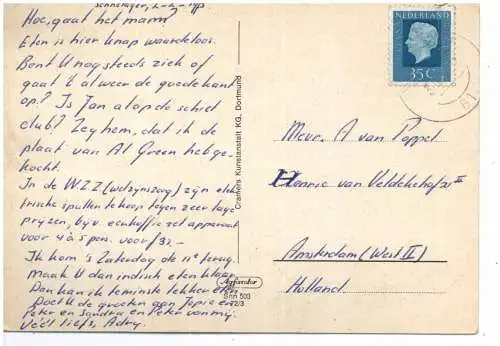 Hoe, gaat het mam?
Eten is hier knap waardeloos.
Bent U nog steeds ziek of
gaat 't alweer de goede kant
op? Is Jan al op de schiet
club? Zeg hem, dat ik de
plaat van Al Green heb ge-
kocht.
In de W.Z.Z (welzijnszorg) zijn elek-
trische spullen te koop tegen zeer lage
prijzen, bijv een koffiezet apparaat
voor 4 à 5 pers. voor f 32.-
Ik kom 's Zaterdag de 11e terug.
Maak U dan indisch eten klaar.
Dan kan ik tenminste lekker eten.
Doet U de groeten aan
Peter en Sandra en Peter van mij.
Veel liefs, Adry.
Cramers Kunstanstalt KG, Dortmund
Agfacolor
Snn 503
NEDERLAND
35 C
61
Mevr. A van Poppel
Henric van Veldekehof
Amsterdam (West II)
Holland.